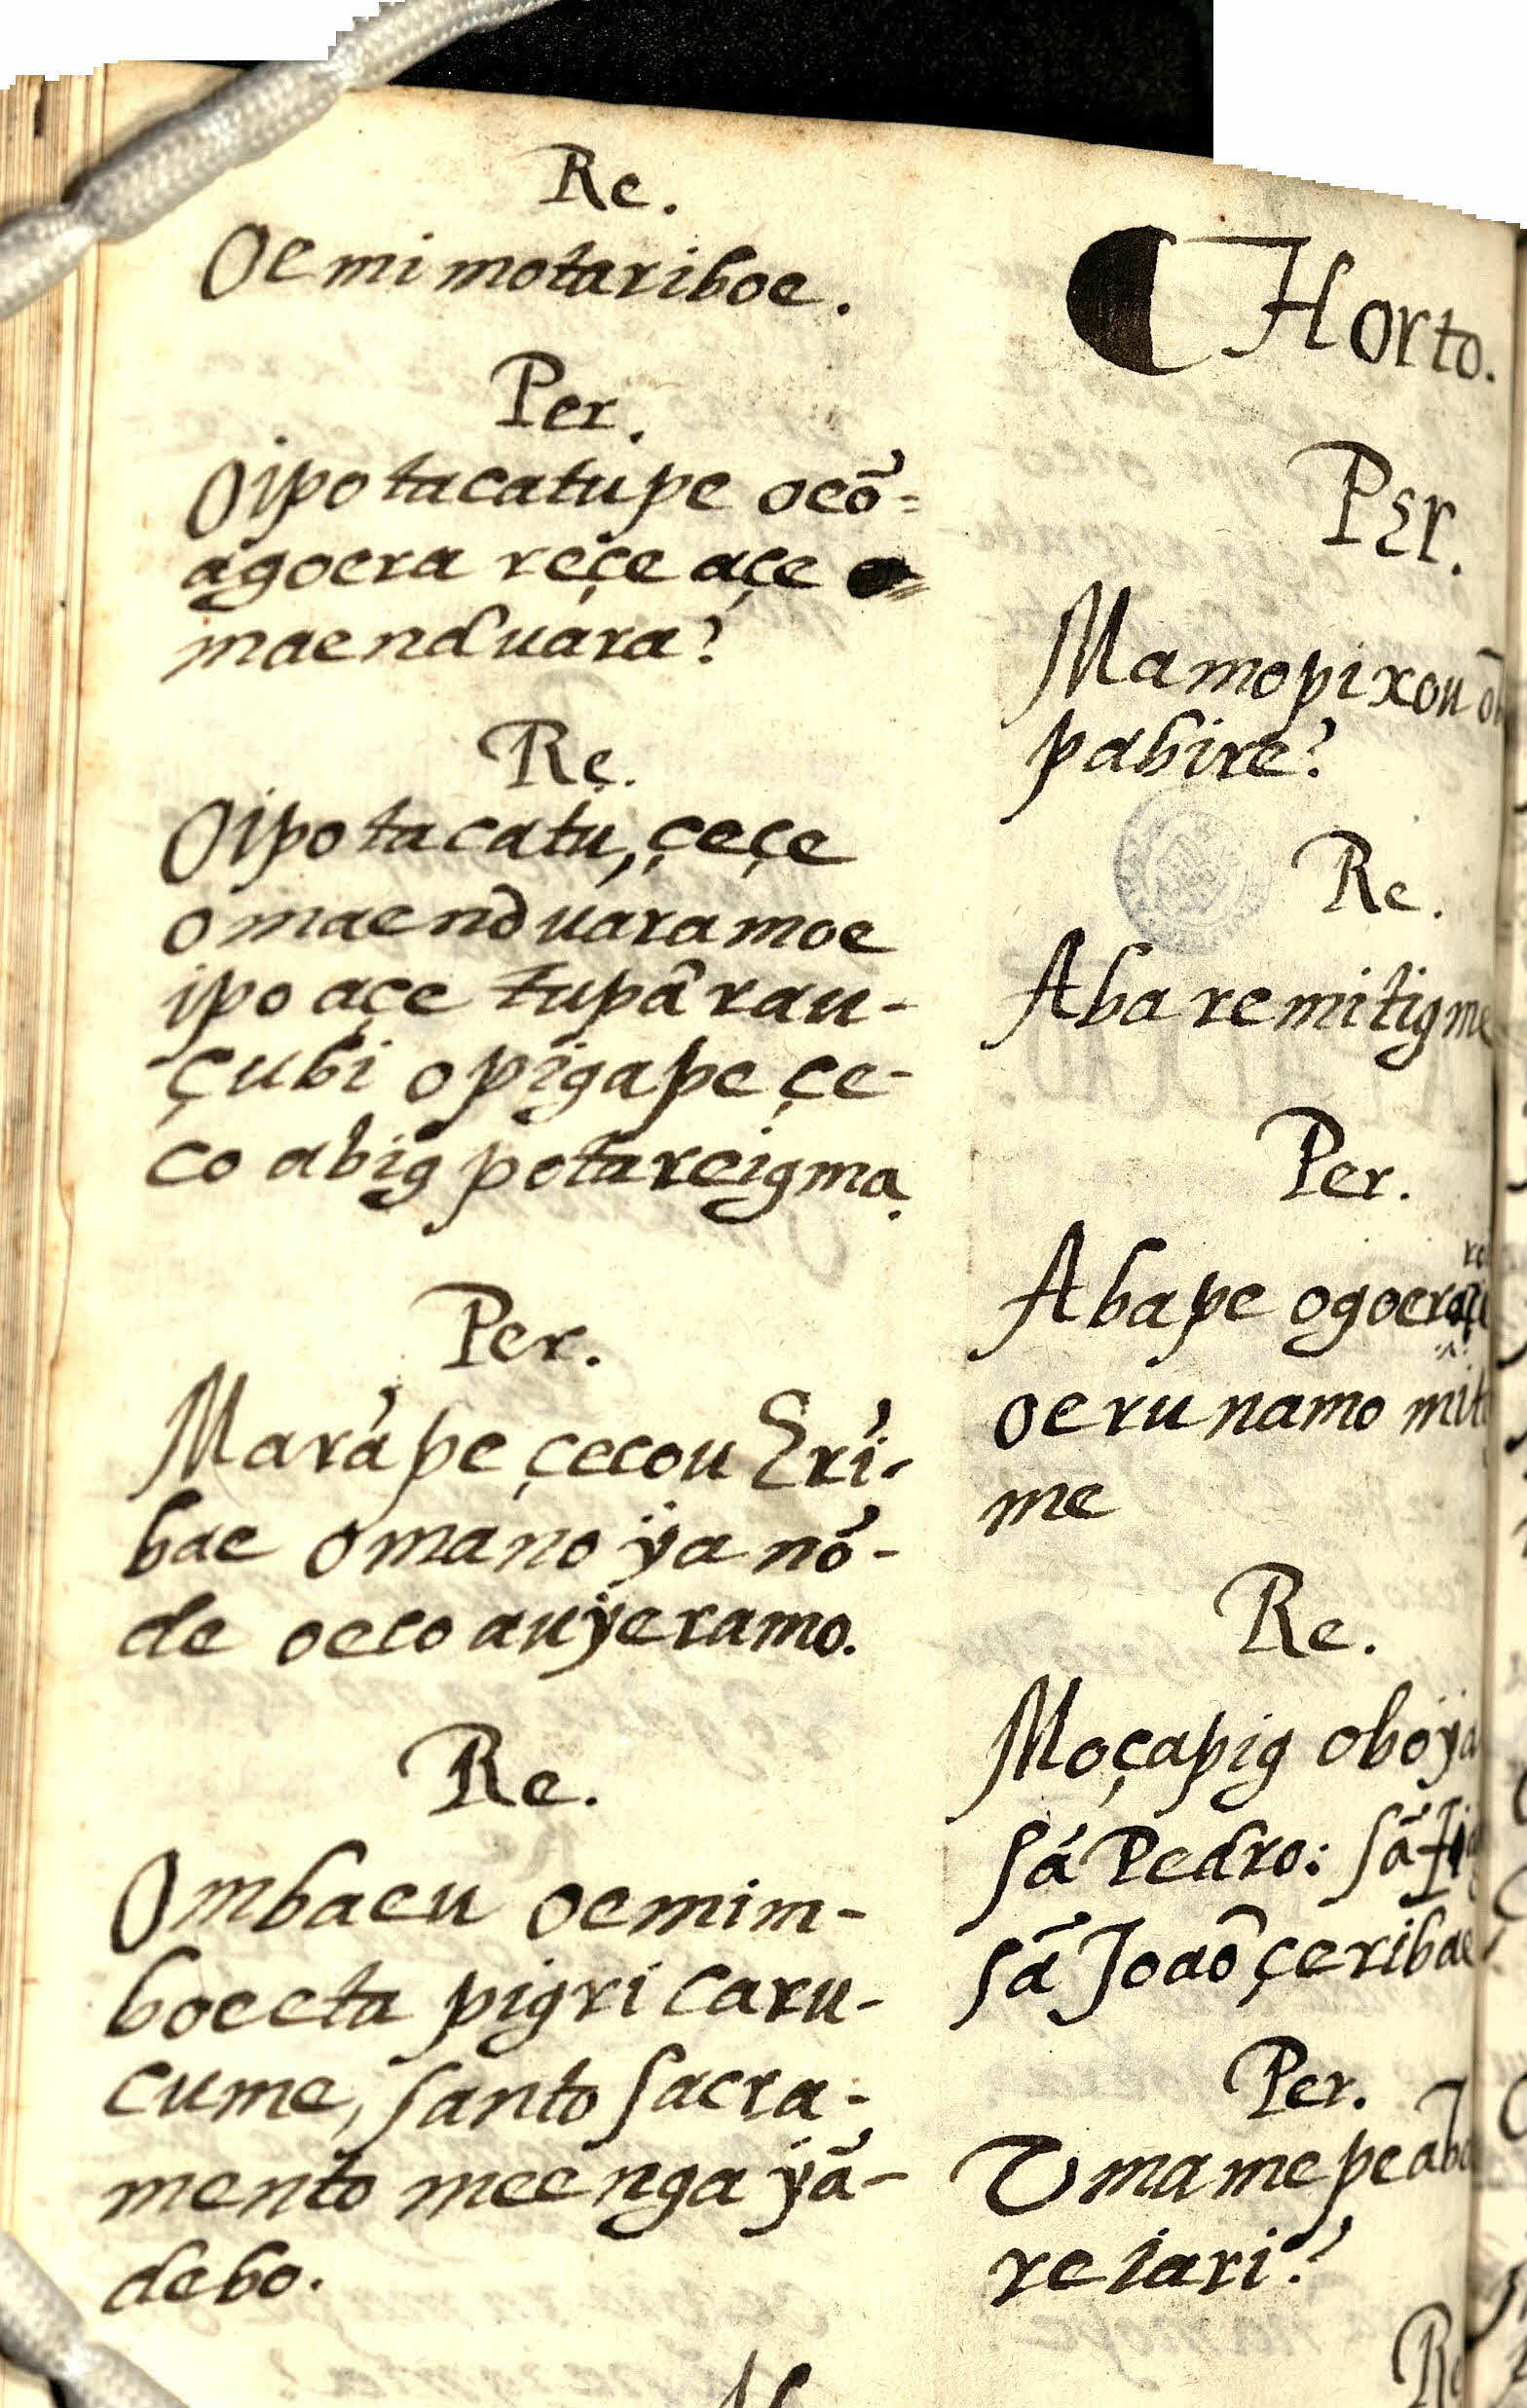 Re.
Oemimotariboe.
Per.
Oipotacatupe oeõ=
agoera reçe açe
maenduara?
Re.
Oipotacatu, çeçe
omaenduaramoe
ipo açe tupã rau-
çubi opigape çe-
co abig potareigma.
Per.
Marãpe çecou Eri-
bae omano ÿa nõ-
de oeco auÿeramo.
Re.
Ombaeu oemim-
boeeta pigri caru-
cume, santo sacra-
mento meenga ÿã-
debo.
Horto.
Per.
Mamopixou
pabire?
Re.
Aba remitigme
Per.
Abape
oerunamo
me
Re.
Moçapig oboÿa
Sã Pedro: Sã
Sã Joaõ çeribae
Per.
Umamepe
reiari?
Re